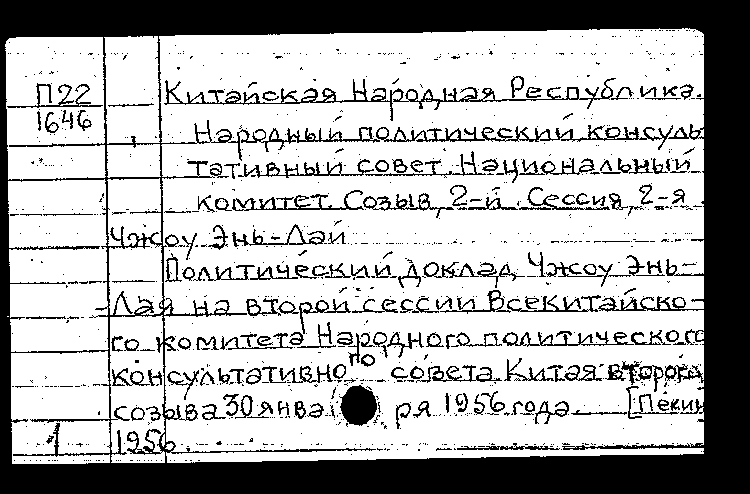 П22 Китайская Народная Республика.
1646 Народный политический консуль
тативный совет. Национальный
комитет. Созыв, 2-й. Сессия, 2-я.
Чжоу Энь-Лай
Политический доклад Чжоу Энь-
Лая на второй сессии Всекитайско-
го комитета Народного политического
консультативного совета Китая второго
созыва 30 января 1956 года. [Пекин
1 1956.